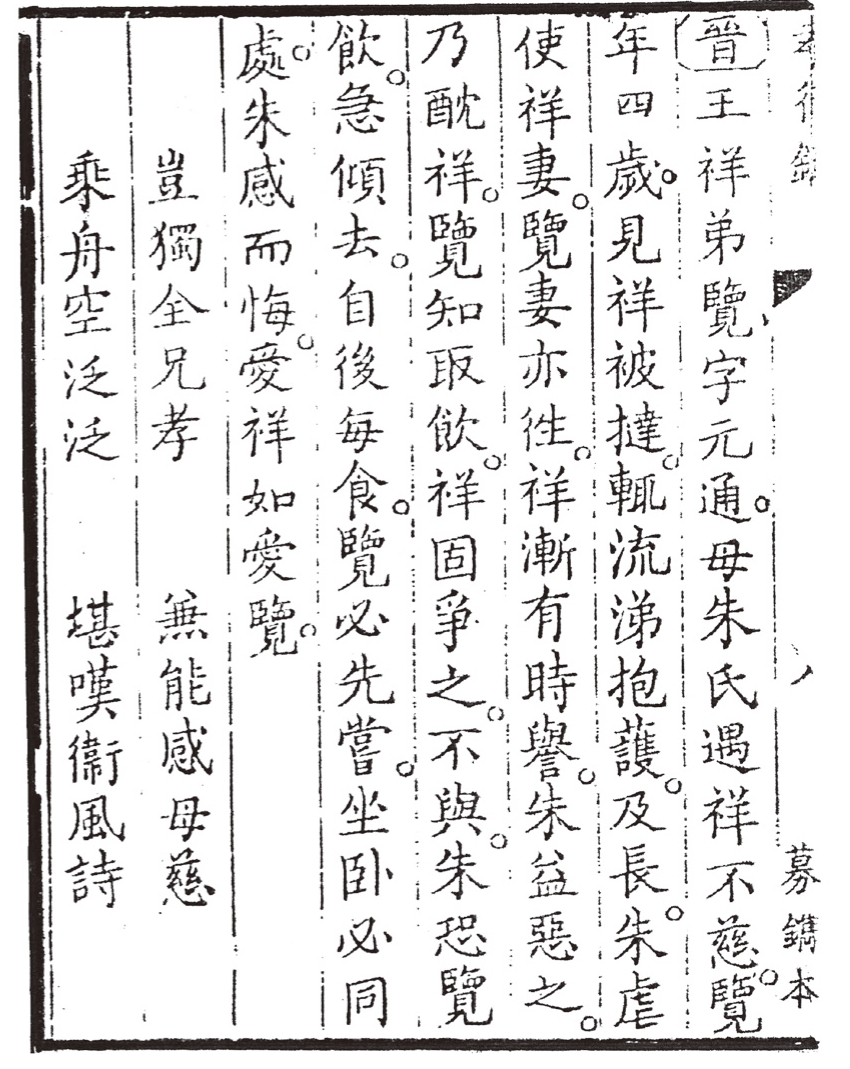 募鐫本
晉王祥弟覽字元通。母朱氏遇祥不慈。覽
年四歲。見祥被撻。輒流涕抱護。及長。朱虐
使祥妻。覽妻亦徃。祥漸有時譽。朱益惡之。
乃酖祥。覽知取飲。祥固爭之。不與。朱恐覽
飲。急傾去。自後每食。覽必先嘗。坐卧必同
處。朱感而悔。愛祥如愛覽。
豈獨全兄孝　兼能感母慈
乘舟空泛泛　堪嘆衞風詩